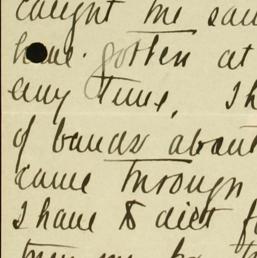 caught me
have gotten at
any time, I h
of bands about
came through
I have to diet f